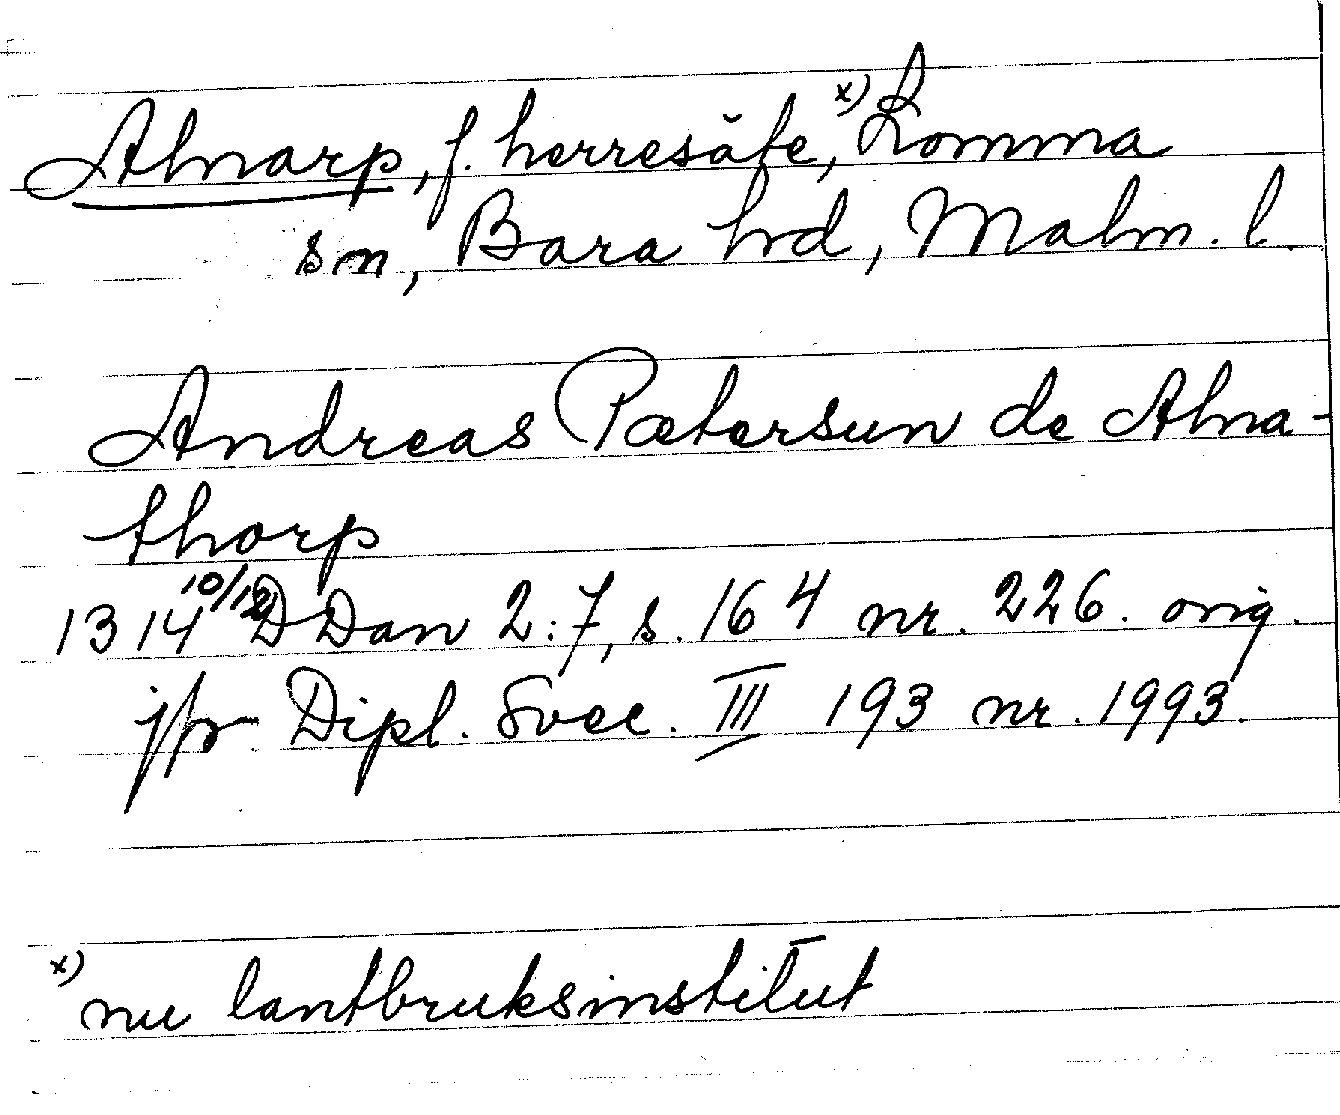 Alnarp, f. herresäte, x) Lomma
sn, Bara hd, Malm. l.
Andreas Pætersun de Alna-
thorp
1314 10/12 DDan 2:7, s. 164 nr. 226. orig.
jfr Dipl. Svec. III 193 nr. 1993.
x) nu lantbruksinstitut